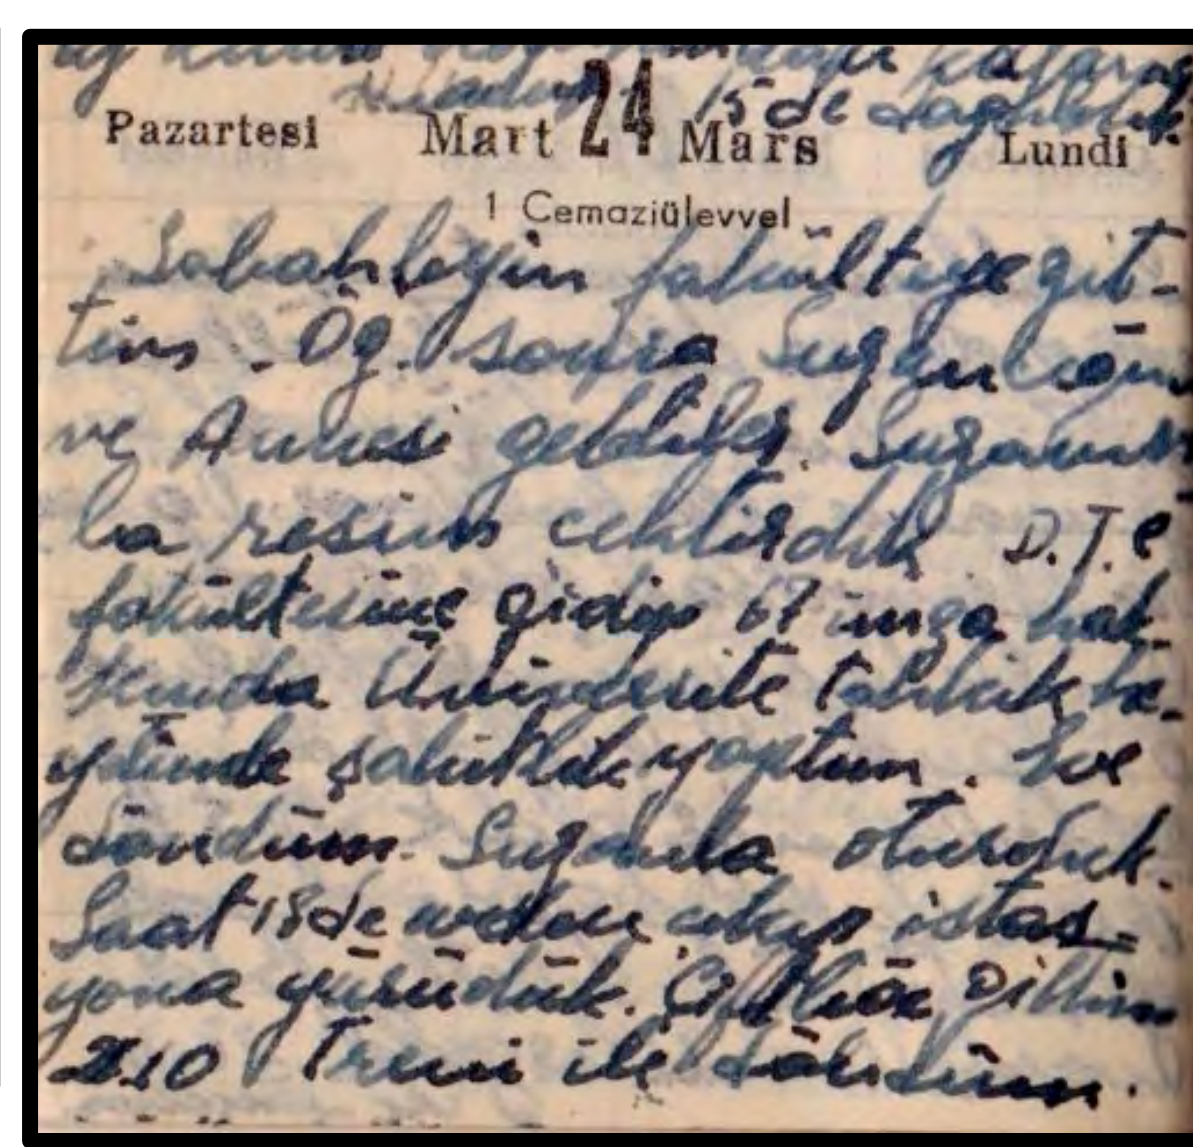 15 de dağıldık
Pazartesi Mart 24 Mars Lundi
1 Cemaziülevvel
Sabahleyin fakülteye git-
tim. Öğ. sonra Suzan
ve Annesi geldiler. Suzanla
resim çektirdik D.T.C
fakültesine gidip 67 imza hak-
kında Üniversite tahkik he-
yetinde şahitlik yaptım. Eve
döndüm. Suzanla oturduk.
Saat 18 de evden çıkıp istas-
yona yürüdük. Çiftliğe gittim
Treni ile döndüm.